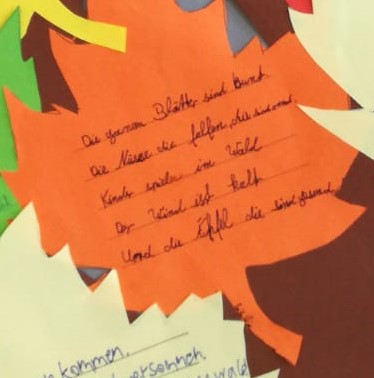 Die ganzen Blätter sind Bunt
Die Nüsse die fallen, die sind rund
Kinder spielen im Wald
Der Wind ist kalt
Und die Äpfel die sind gesund
kommen.
wald